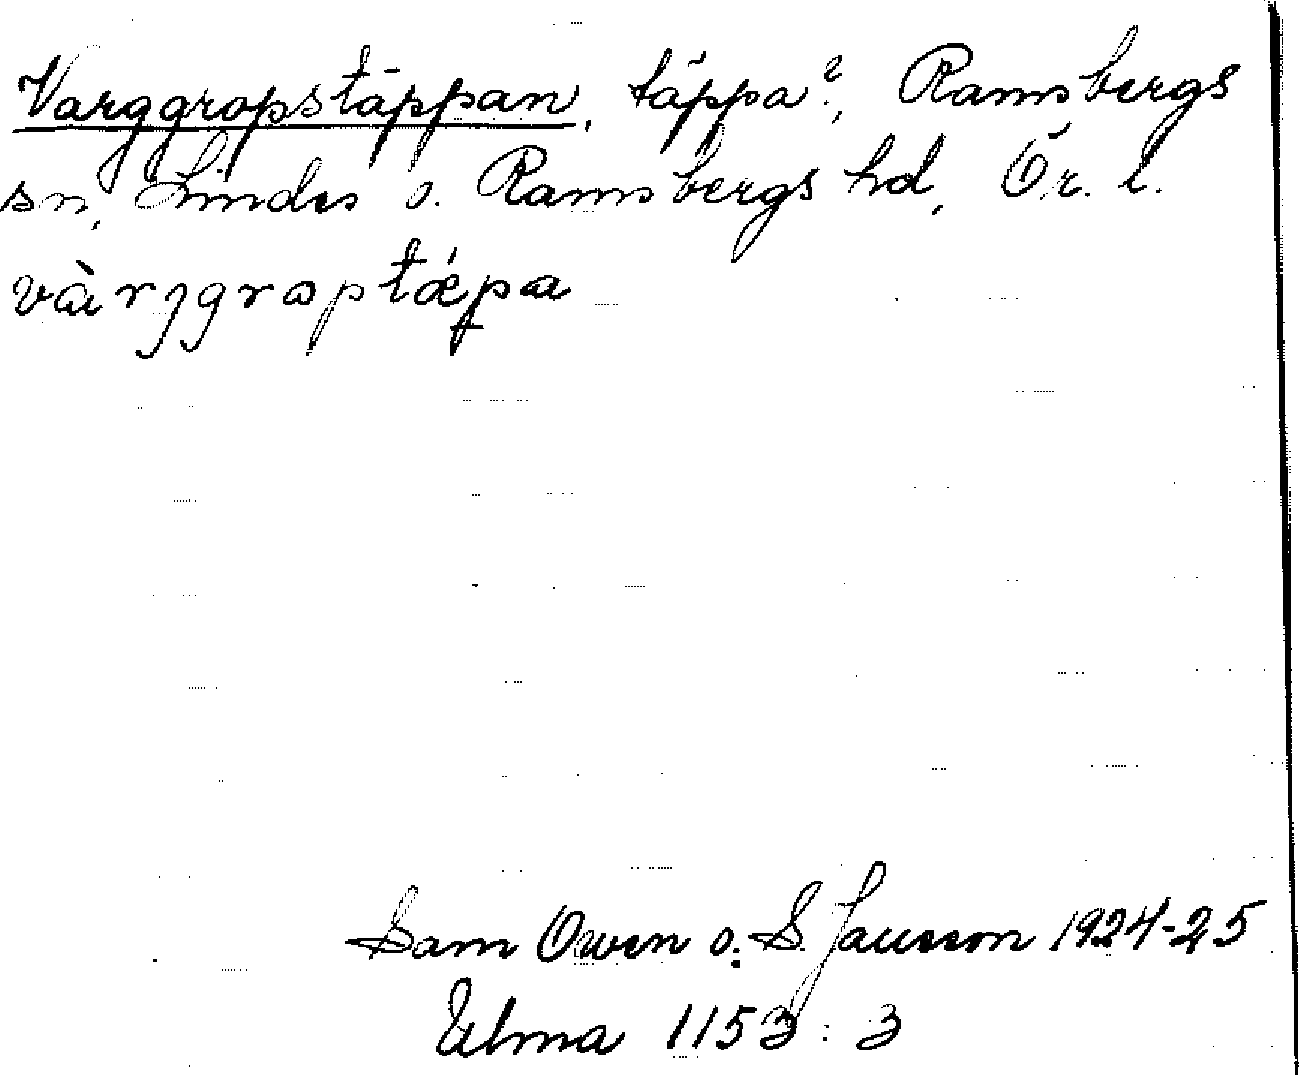 Varggropstäppan, täppa?, Ramsbergs
sn, Lindes o. Ramsbergs hd, Ör. l.
vàrjgroptǽpa
Sam Owen o. S. Jansson 1924-25
Ulma 1153:3